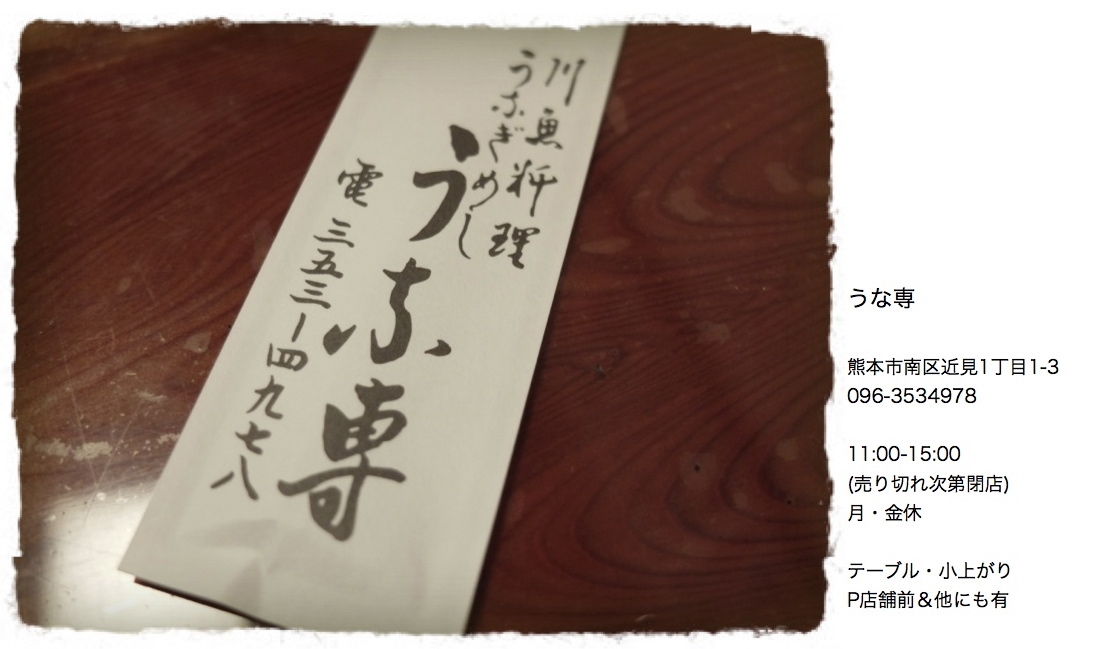 川魚料理
うなぎめし
うな専
電 三五三ー四九七八
うな専
熊本市南区近見1丁目1-3
096-3534978
11:00-15:00
(売り切れ次第閉店)
月・金休
テーブル・小上がり
P店舗前＆他にも有